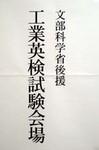 文部科学省後援
工業英検試験会場